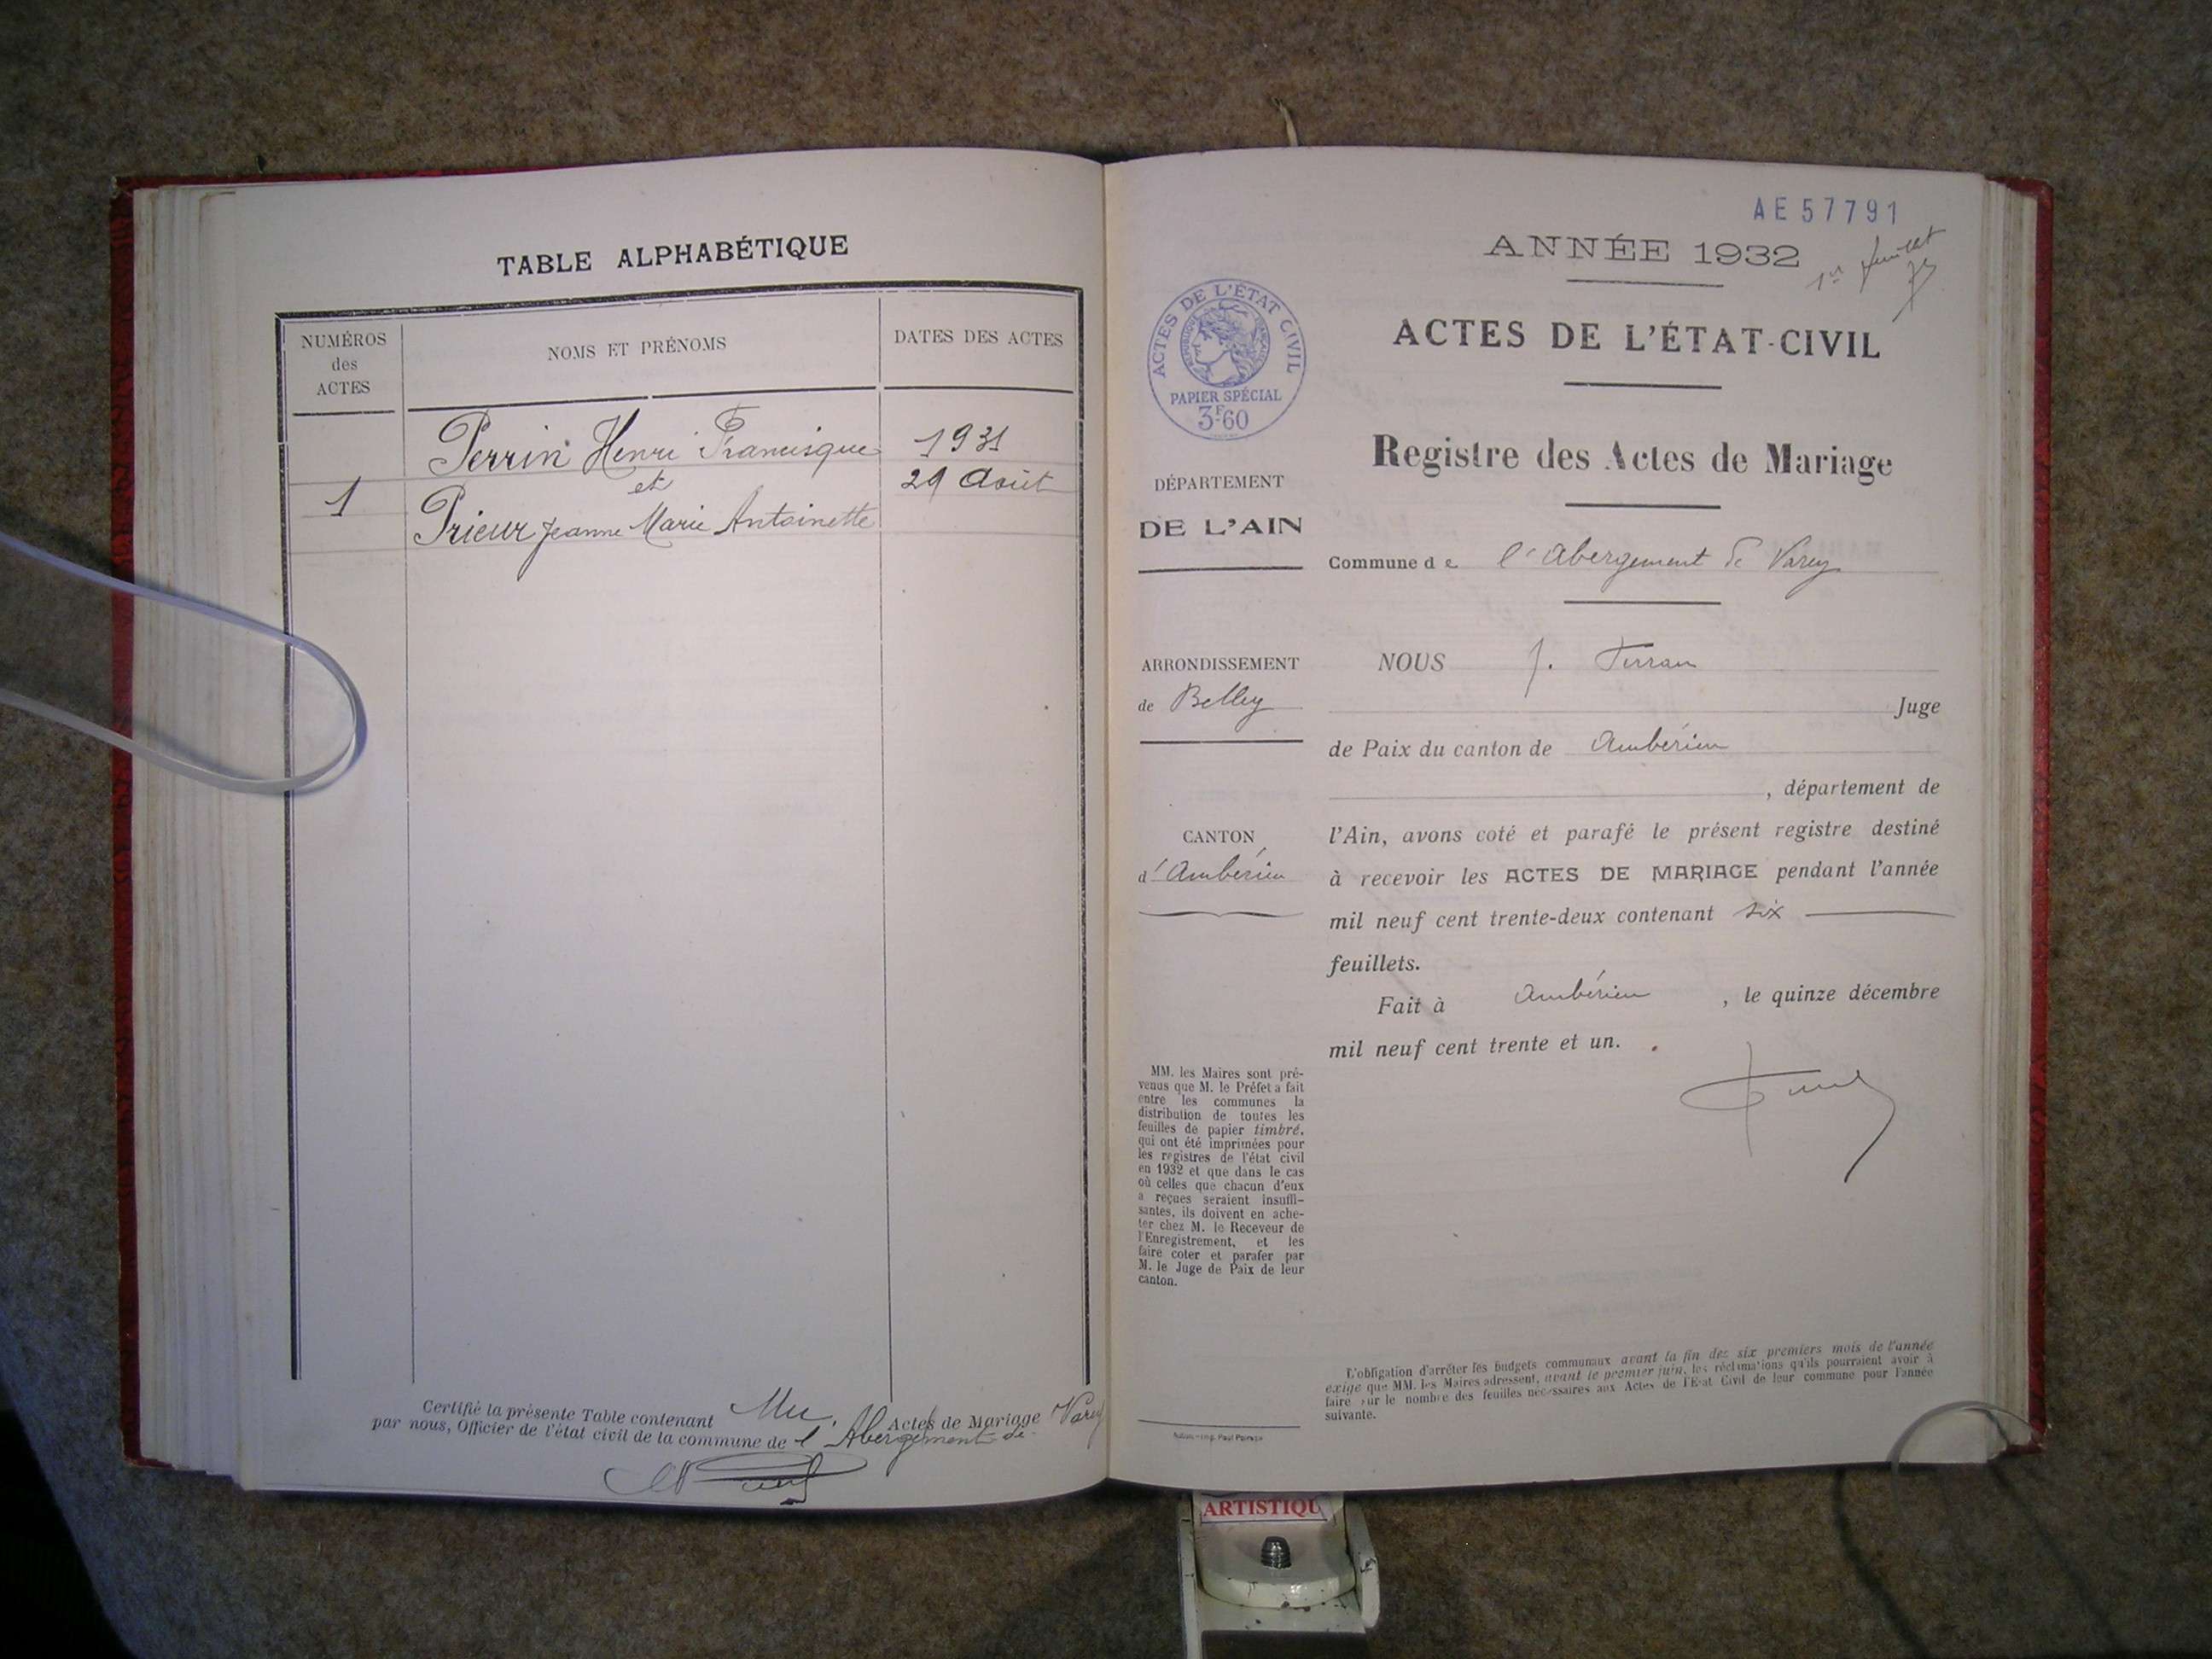 TABLE ALPHABÉTIQUE
NUMÉROS
des
ACTES
NOMS ET PRÉNOMS
DATES DES ACTES
Perrin Henri Francisque 1931
et 29 Août
1
Prieur Jeanne Marie Antoinette
Certifié la présente Table contenant Un. Actes de Mariage
par nous, Officier de l'état civil de la commune de l'Abergement de Varey
AE 57791
ANNÉE 1932
1er feuillet
ACTES DE L'ÉTAT-CIVIL
Registre des Actes de Mariage
ACTES DE L'ÉTAT CIVIL
RÉPUBLIQUE FRANÇAISE
PAPIER SPÉCIAL
3F60
DÉPARTEMENT
DE L'AIN
ARRONDISSEMENT
de Belley
CANTON
d'Ambérieu
MM. les Maires sont pré-
venus que M. le Préfet a fait
entre les communes la
distribution de toutes les
feuilles de papier timbré,
qui ont été imprimées pour
les registres de l'état civil
en 1932 et que dans le cas
où celles que chacun d'eux
a reçues seraient insuffi-
santes, ils doivent en ache-
ter chez M. le Receveur de
l'Enregistrement, et les
faire coter et parafer par
M. le Juge de Paix de leur
canton.
Commune de l'Abergement de Varey
NOUS J. Ferran
Juge
de Paix du canton de Ambérieu
, département de
l'Ain, avons coté et parafé le présent registre destiné
à recevoir les ACTES DE MARIAGE pendant l'année
mil neuf cent trente-deux contenant six
feuillets.
Fait à Ambérieu , le quinze décembre
mil neuf cent trente et un.
L'obligation d'arrêter les budgets communaux avant la fin des six premiers mois de l'année
exige que MM. les Maires adressent, avant le premier juin, les réclamations qu'ils pourraient avoir à
faire sur le nombre des feuilles nécessaires aux Actes de l'Etat Civil de leur commune pour l'année
suivante.
ARTISTIQU